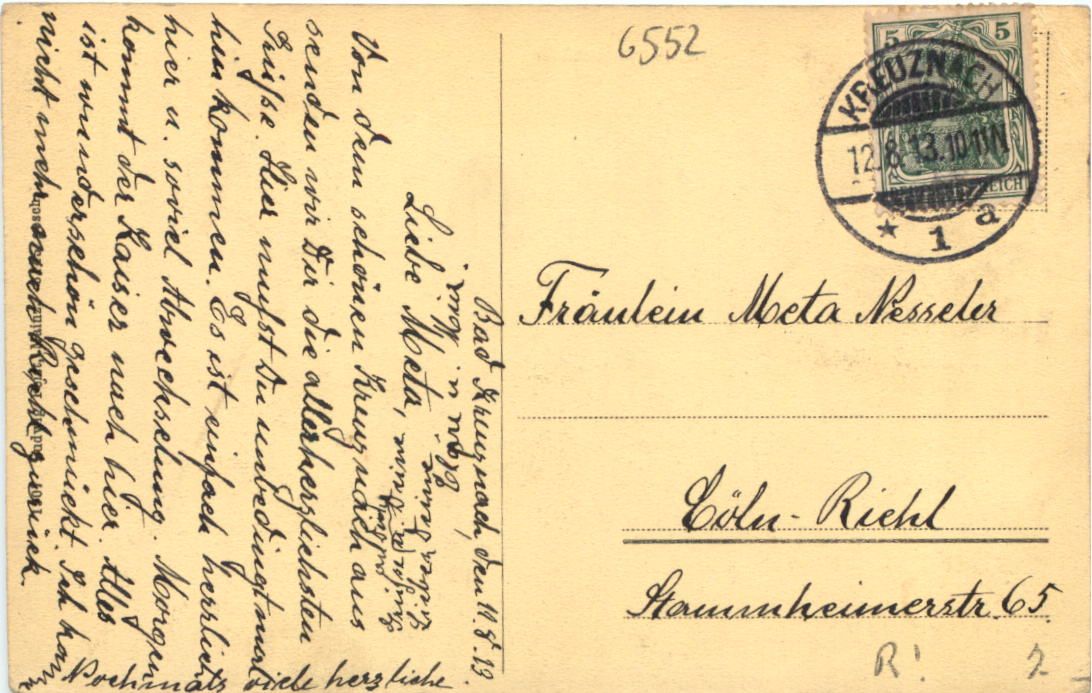 Bad Kreuznach, den 11.8.13
Liebe Meta,
Von dem schönen Kreuznach aus
senden wir Dir die allerherzlichsten
Grüsse. Hier müsst Du unbedingt mal
hin kommen. Es ist einfach herrlich
hier u. soviel Abwechselung. Morgen
kommt der Kaiser nach hier. Alles
ist wunderschön geschmückt. Ich kann
nicht mehr zurück.
Nochmals viele herzliche
6552
5 5
KREUZNACH
12.8.13.10-11 N
* 1 a
REICH
Fräulein Meta Nesseler
Cöln-Riehl
Stammheimerstr 65
R! 2